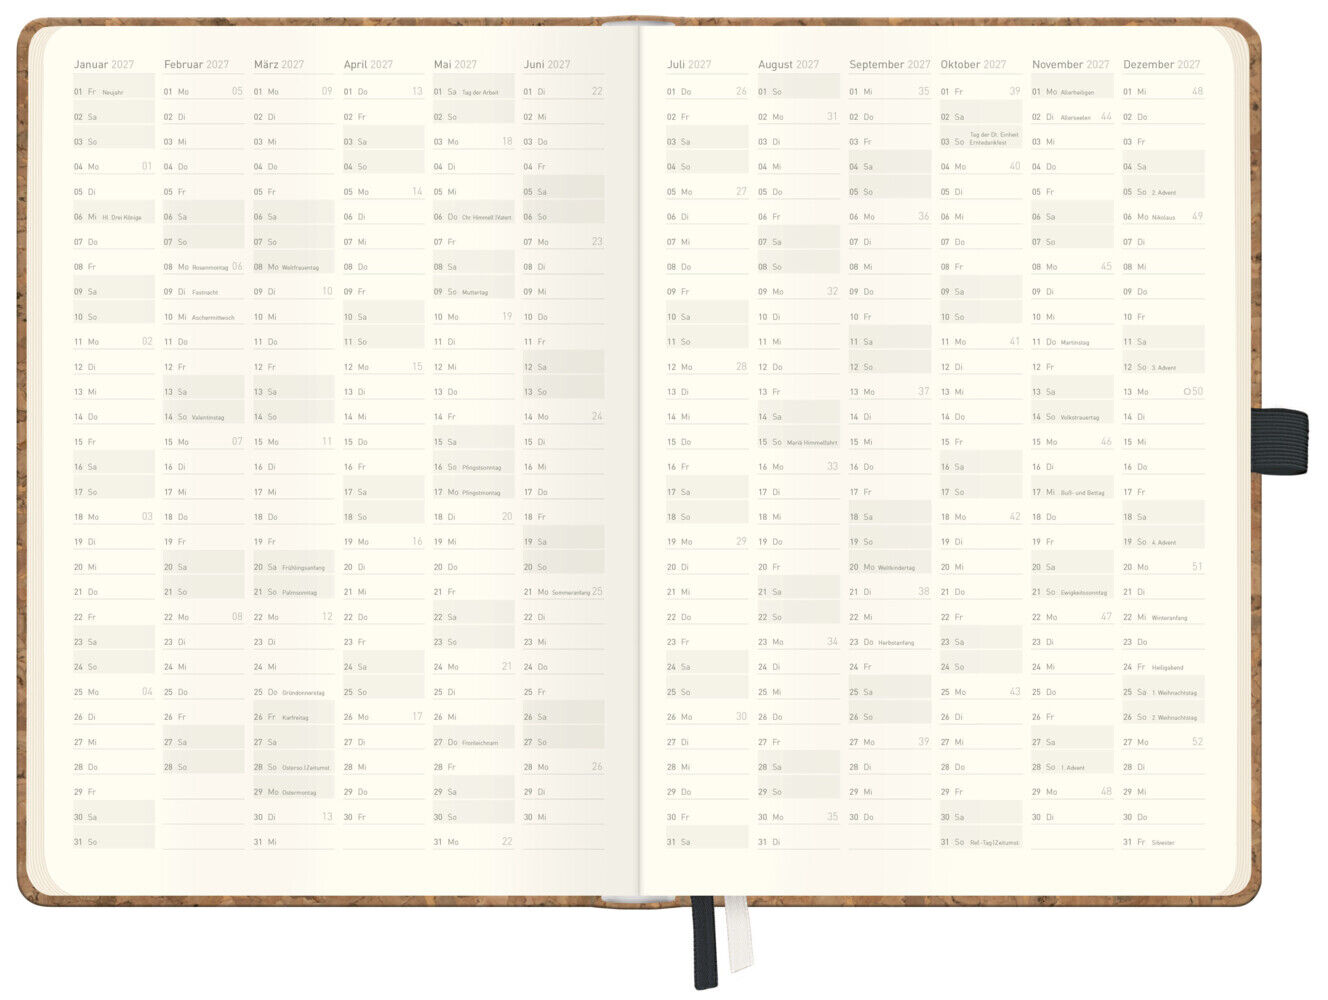 Januar 2027
01 Fr Neujahr
02 Sa
03 So
04 Mo 01
05 Di
06 Mi Hl. Drei Könige
07 Do
08 Fr
09 Sa
10 So
11 Mo 02
12 Di
13 Mi
14 Do
15 Fr
16 Sa
17 So
18 Mo 03
19 Di
20 Mi
21 Do
22 Fr
23 Sa
24 So
25 Mo 04
26 Di
27 Mi
28 Do
29 Fr
30 Sa
31 So
Februar 2027
01 Mo 05
02 Di
03 Mi
04 Do
05 Fr
06 Sa
07 So
08 Mo Rosenmontag 06
09 Di Fastnacht
10 Mi Aschermittwoch
11 Do
12 Fr
13 Sa
14 So Valentinstag
15 Mo 07
16 Di
17 Mi
18 Do
19 Fr
20 Sa
21 So
22 Mo 08
23 Di
24 Mi
25 Do
26 Fr
27 Sa
28 So
März 2027
01 Mo 09
02 Di
03 Mi
04 Do
05 Fr
06 Sa
07 So
08 Mo Weltfrauentag
09 Di 10
10 Mi
11 Do
12 Fr
13 Sa
14 So
15 Mo 11
16 Di
17 Mi
18 Do
19 Fr
20 Sa Frühlingsanfang
21 So Palmsonntag
22 Mo 12
23 Di
24 Mi
25 Do Gründonnerstag
26 Fr Karfreitag
27 Sa
28 So Osterso.|Zeitumst.
29 Mo Ostermontag
30 Di 13
31 Mi
April 2027
01 Do 13
02 Fr
03 Sa
04 So
05 Mo 14
06 Di
07 Mi
08 Do
09 Fr
10 Sa
11 So
12 Mo 15
13 Di
14 Mi
15 Do
16 Fr
17 Sa
18 So
19 Mo 16
20 Di
21 Mi
22 Do
23 Fr
24 Sa
25 So
26 Mo 17
27 Di
28 Mi
29 Do
30 Fr
Mai 2027
01 Sa Tag der Arbeit
02 So
03 Mo 18
04 Di
05 Mi
06 Do Chr. Himmelf.|Vatert.
07 Fr
08 Sa
09 So Muttertag
10 Mo 19
11 Di
12 Mi
13 Do
14 Fr
15 Sa
16 So Pfingstsonntag
17 Mo Pfingstmontag
18 Di 20
19 Mi
20 Do
21 Fr
22 Sa
23 So
24 Mo 21
25 Di
26 Mi
27 Do Fronleichnam
28 Fr
29 Sa
30 So
31 Mo 22
Juni 2027
01 Di 22
02 Mi
03 Do
04 Fr
05 Sa
06 So
07 Mo 23
08 Di
09 Mi
10 Do
11 Fr
12 Sa
13 So
14 Mo 24
15 Di
16 Mi
17 Do
18 Fr
19 Sa
20 So
21 Mo Sommeranfang 25
22 Di
23 Mi
24 Do
25 Fr
26 Sa
27 So
28 Mo 26
29 Di
30 Mi
Juli 2027
01 Do 26
02 Fr
03 Sa
04 So
05 Mo 27
06 Di
07 Mi
08 Do
09 Fr
10 Sa
11 So
12 Mo 28
13 Di
14 Mi
15 Do
16 Fr
17 Sa
18 So
19 Mo 29
20 Di
21 Mi
22 Do
23 Fr
24 Sa
25 So
26 Mo 30
27 Di
28 Mi
29 Do
30 Fr
31 Sa
August 2027
01 So
02 Mo 31
03 Di
04 Mi
05 Do
06 Fr
07 Sa
08 So
09 Mo 32
10 Di
11 Mi
12 Do
13 Fr
14 Sa
15 So Mariä Himmelfahrt
16 Mo 33
17 Di
18 Mi
19 Do
20 Fr
21 Sa
22 So
23 Mo 34
24 Di
25 Mi
26 Do
27 Fr
28 Sa
29 So
30 Mo 35
31 Di
September 2027
01 Mi 35
02 Do
03 Fr
04 Sa
05 So
06 Mo 36
07 Di
08 Mi
09 Do
10 Fr
11 Sa
12 So
13 Mo 37
14 Di
15 Mi
16 Do
17 Fr
18 Sa
19 So
20 Mo Weltkindertag
21 Di 38
22 Mi
23 Do Herbstanfang
24 Fr
25 Sa
26 So
27 Mo 39
28 Di
29 Mi
30 Do
Oktober 2027
01 Fr 39
02 Sa
Tag der Dt. Einheit
03 So Erntedankfest
04 Mo 40
05 Di
06 Mi
07 Do
08 Fr
09 Sa
10 So
11 Mo 41
12 Di
13 Mi
14 Do
15 Fr
16 Sa
17 So
18 Mo 42
19 Di
20 Mi
21 Do
22 Fr
23 Sa
24 So
25 Mo 43
26 Di
27 Mi
28 Do
29 Fr
30 Sa
31 So Ref.-Tag|Zeitumst.
November 2027
01 Mo Allerheiligen
02 Di Allerseelen 44
03 Mi
04 Do
05 Fr
06 Sa
07 So
08 Mo 45
09 Di
10 Mi
11 Do Martinstag
12 Fr
13 Sa
14 So Volkstrauertag
15 Mo 46
16 Di
17 Mi Buß- und Bettag
18 Do
19 Fr
20 Sa
21 So Ewigkeitssonntag
22 Mo 47
23 Di
24 Mi
25 Do
26 Fr
27 Sa
28 So 1. Advent
29 Mo 48
30 Di
Dezember 2027
01 Mi 48
02 Do
03 Fr
04 Sa
05 So 2. Advent
06 Mo Nikolaus 49
07 Di
08 Mi
09 Do
10 Fr
11 Sa
12 So 3. Advent
13 Mo 50
14 Di
15 Mi
16 Do
17 Fr
18 Sa
19 So 4. Advent
20 Mo 51
21 Di
22 Mi Winteranfang
23 Do
24 Fr Heiligabend
25 Sa 1. Weihnachtstag
26 So 2. Weihnachtstag
27 Mo 52
28 Di
29 Mi
30 Do
31 Fr Silvester